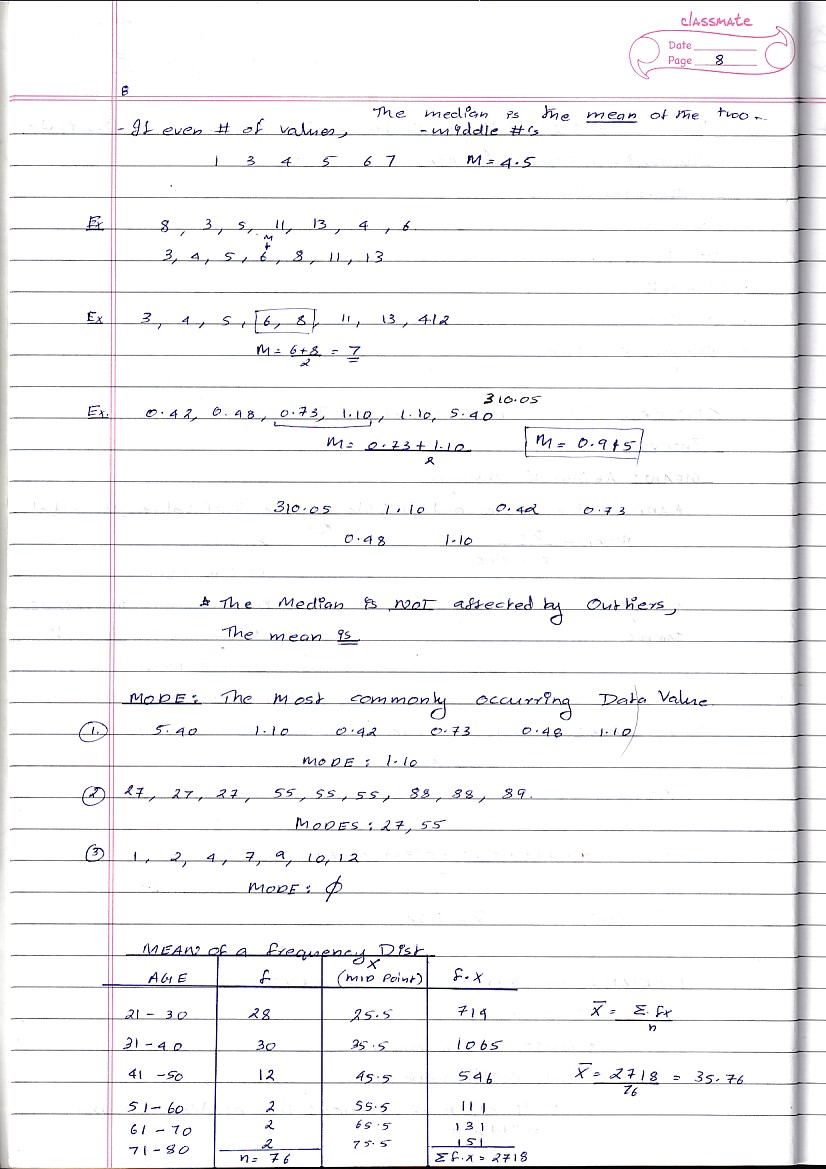 classmate
Date
Page 8
B
The median is the mean of the two -
- If even # of values, - middle #'s
1 3 4 5 6 7 M = 4.5
Ex 8, 3, 5, 11, 13, 4, 6
M
3, 4, 5, 6, 8, 11, 13
Ex 3, 4, 5, 6, 8, 11, 13, 412
M = 6+8/2 = 7
310.05
Ex. 0.42, 0.48, 0.73, 1.10, 1.10, 5.40
M = 0.73 + 1.10 / 2 M = 0.915
310.05 1.10 0.42 0.73
0.48 1.10
* The Median is NOT affected by Outliers,
The mean is
MODE: The most commonly occurring Data Value
1. 5.40 1.10 0.42 0.73 0.48 1.10
MODE : 1.10
2 27, 27, 27, 55, 55, 55, 88, 88, 89.
MODES : 27, 55
3 1, 2, 4, 7, 9, 10, 12
MODE : ϕ
MEAN of a frequency Dist
AGE f X (MID Point) f.x
21 - 30 28 25.5 714 X̄ = Σ.fx/n
31 - 40 30 35.5 1065
41 - 50 12 45.5 546 X̄ = 2718/76 = 35.76
51 - 60 2 55.5 111
61 - 70 2 65.5 131
71 - 80 2 75.5 151
n = 76 Σf.x = 2718